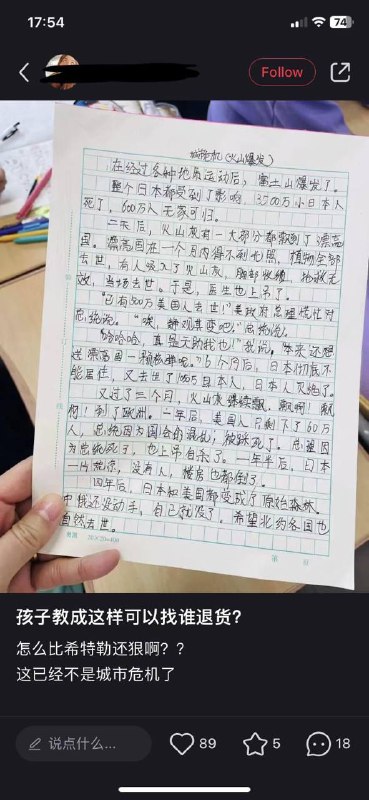 17:54
74
Follow
(火山爆发)
在经过各种地质运动后，富士山爆发了。
整个日本都受到了影响，1300万小日本人
死了，600万人无家可归。
二天后，火山灰有一大部分都飘到了漂亮
国。漂亮国在一个月内得不到光照，植物全部
去世，有人吸入了火山灰，胸部
效，当场去世。于是，医生也上吊了。
"已有500万美国人去世!"美政府总理慌忙对
总统说。"唉，静观其变吧!"总统说。
"哈哈哈，真是天助我也!"我说。"本来还想
送漂亮国一颗核弹呢。"6个月后，日本彻底不
能居住，又去世了 日本人，日本人灭绝了。
又过了三个月，火山灰继续飘，飘啊!飘
啊!到了欧洲。一年后，美国人只剩下了60万
人，总统因为国会的混乱，被踩死了。总理因
为总统死了，也上吊自杀了。一年半后，日本
一片荒凉，没有人，楼房也都倒了。
四年后，日本和美国都变成了原始森林。
中俄还没动手，自己就没了。希望北约各国也
自然去世。
20×20=400
第 页
孩子教成这样可以找谁退货?
怎么比希特勒还狠啊？？
这已经不是城市危机了
说点什么...
89
5
18